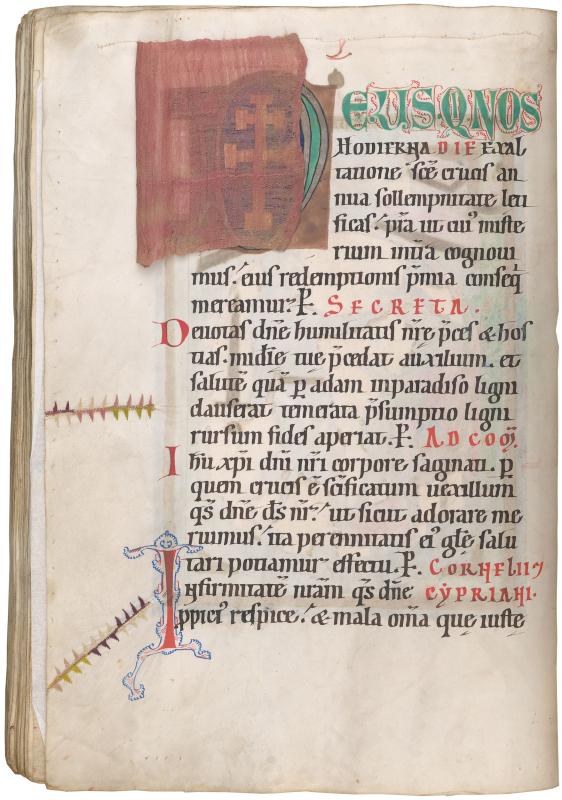 EUS Q NOS
HODIERNA DIE Exal
tatione sce crucis an
nua sollempnitate leti
ficas. pra ut cui miste
rium intra cognoui
mus. eius redemptionis pmia conseq
mereamur. P. SECRETA.
Deuotas dne humilitatis nre pces & hos
tias. midie tue pcedat auxilium. et
salute qua p adam inparadiso ligni
clauserat temerata psumptio ligni
rursum fides aperiat. P. AD COM.
Ihu xpi dni nri corpore saginati. p
quem crucis e scificatum uexillum
qs dne ds nr. ut sicut adorare me
ruimus. ita perennitatis ei gle salu
tari potiamur effectu. P. CORNELII
Infirmitate nram qs dne CYPRIANI.
ppici respice. & mala oma que iuste